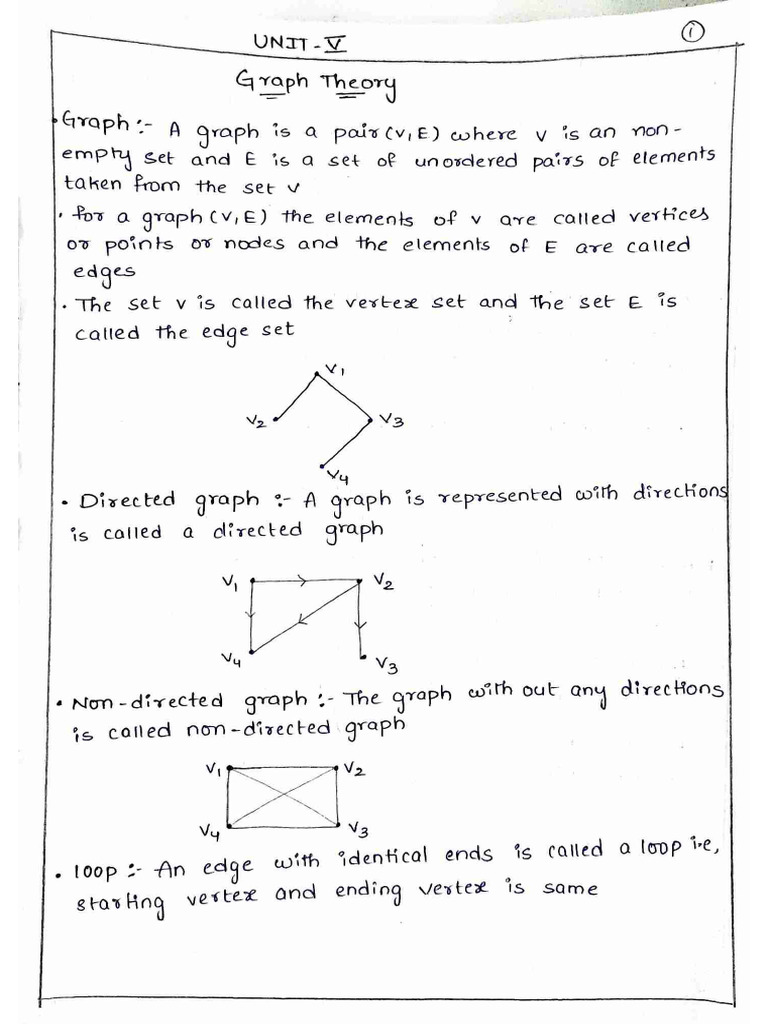 ①
UNIT-V
Graph Theory
• Graph :- A graph is a pair (V,E) where V is an non-
empty set and E is a set of unordered pairs of elements
taken from the set V
• for a graph (V,E) the elements of V are called vertices
or points or nodes and the elements of E are called
edges
• The set V is called the vertex set and the set E is
called the edge set
V1
V2
V3
V4
• Directed graph :- A graph is represented with directions
is called a directed graph
V1
V2
V4
V3
• Non-directed graph :- The graph with out any directions
is called non-directed graph
V1
V2
V4
V3
• loop :- An edge with identical ends is called a loop i.e,
starting vertex and ending vertex is same